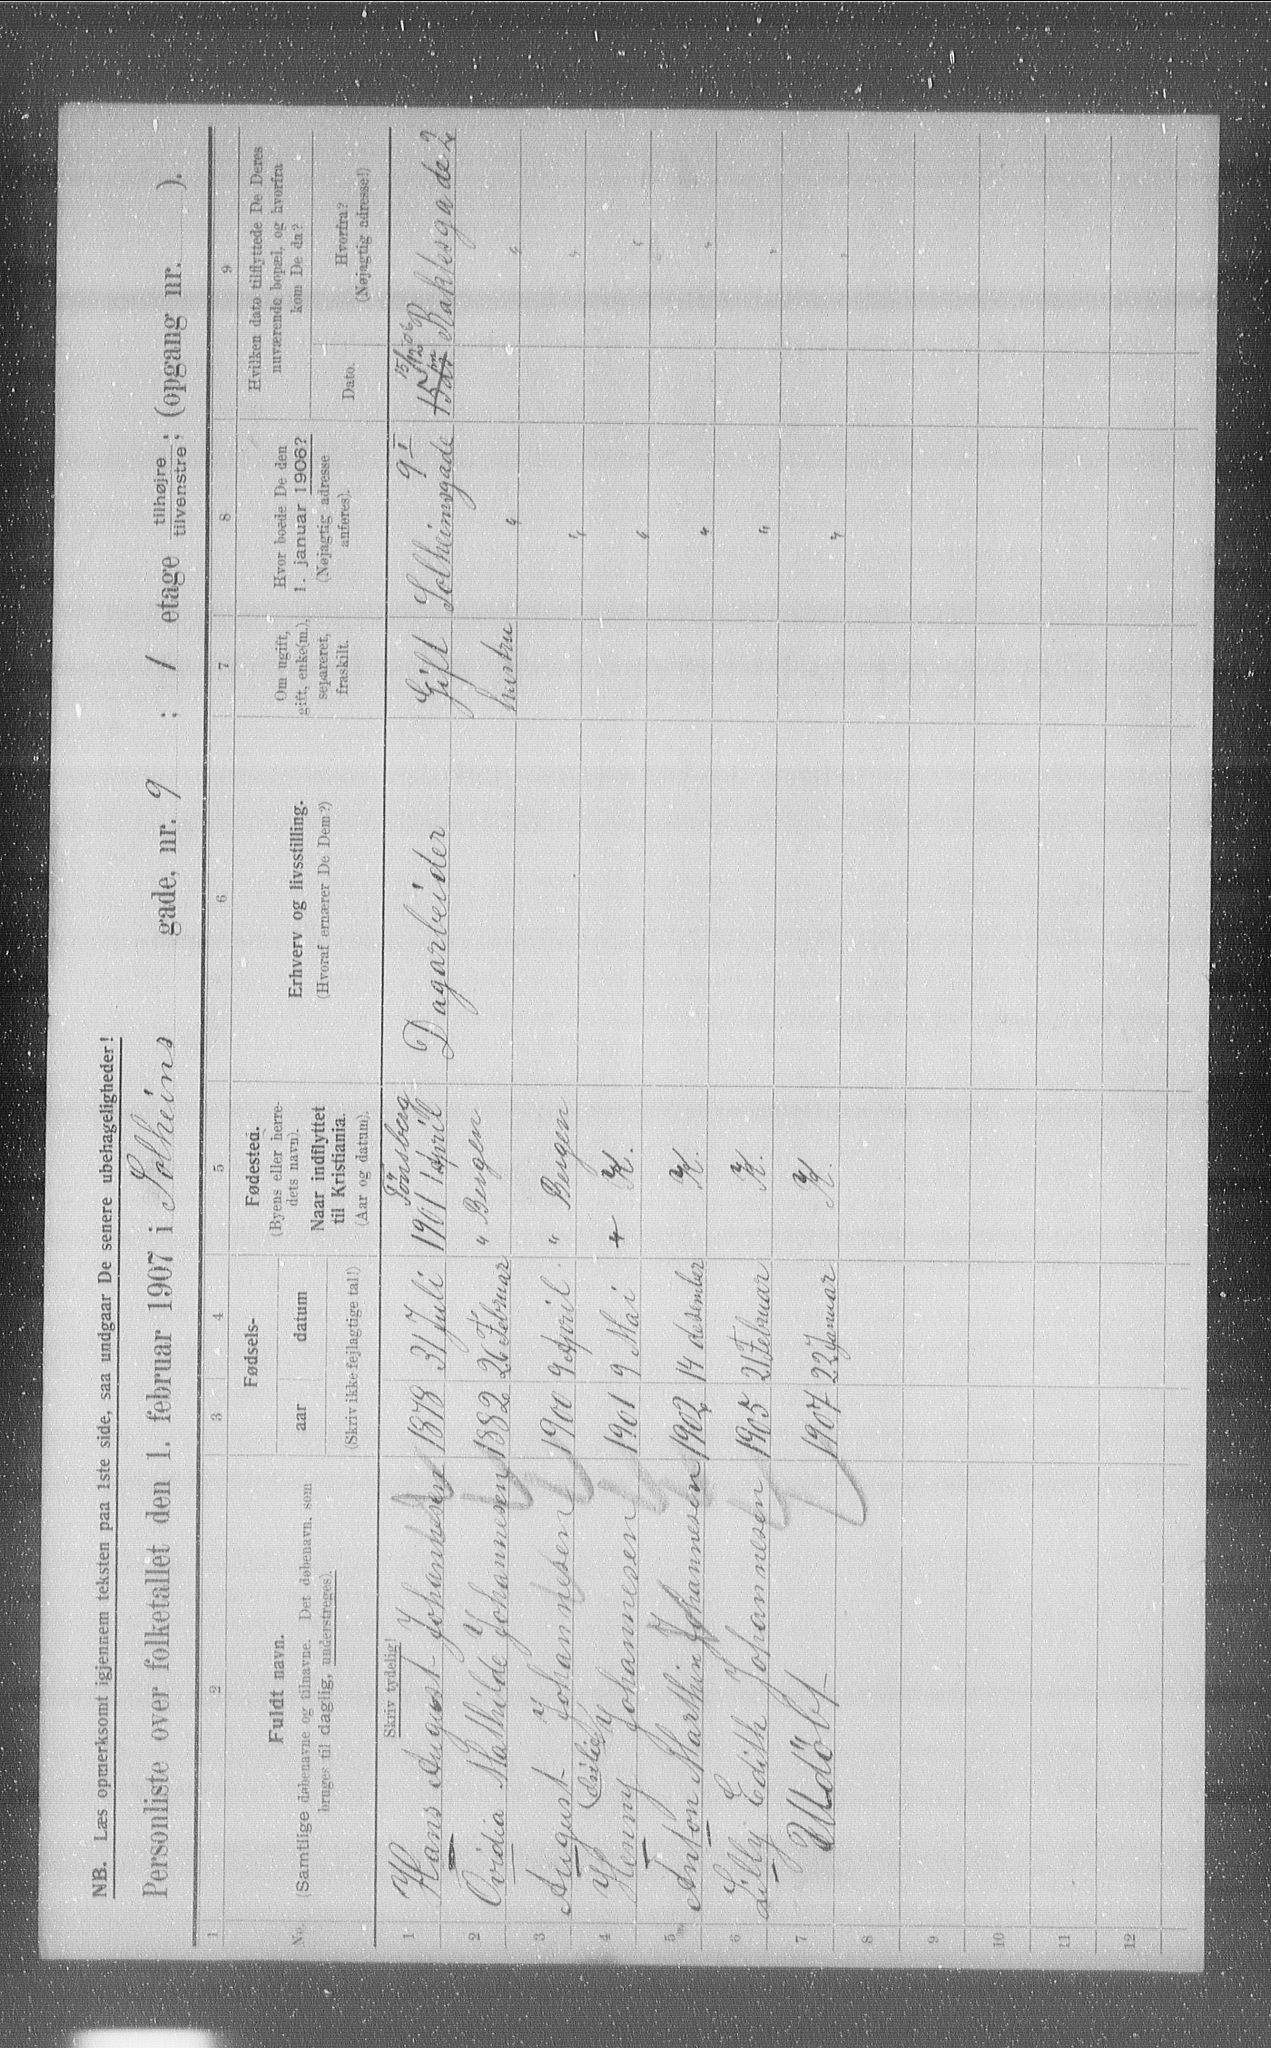 NB. Læs opmerksomt igjennem teksten paa 1ste side, saa undgaar De senere ubehageligheder!
Personliste over folketallet den 1. februar 1907 i Solheins gade, nr. 9 ; 1 etage tilhøjre tilvenstre; (opgang nr. ).
1 2 3 4 5 6 7 8 9
No.
Fuldt navn.
(Samtlige døbenavne og tilnavne. Det døbenavn, som
bruges til daglig, understreges).
Skriv tydelig!
Fødsels-
aar datum
(Skriv ikke fejlagtige tal!)
Fødested.
(Byens eller herre-
dets navn).
Naar indflyttet
til Kristiania.
(Aar og datum).
Erhverv og livsstilling.
(Hvoraf ernærer De Dem?)
Om ugift,
gift, enke(m.),
separeret,
fraskilt.
Hvor boede De den
1. januar 1906?
(Nøjagtig adresse
anføres).
Hvilken dato tilflyttede De Deres
nuværende bopæl, og hvorfra
kom De da?
Dato.
Hvorfra?
(Nøjagtig adresse!)
1 Hans August Johannesen 1878 31 Juli Tönsberg 1901 1 April Dagarbeider Gift Solheimsgade 9 I 15/12 06 Rathkesgade 2
2 Ovidia Mathilde Johannesen 1882 26 Februar " Bergen hustru " "
3 August Johannesen 1900 9 April. " Bergen " "
4 Henny Johannesen 1901 9 Mai " K. " "
5 Anton Marthin Johannesen 1902 14 desember K. " "
6 Lilly Edith Johannesen 1905 21 Februar K. " "
7 Udöbt 1907 22 Januar K. " "
8
9
10
11
12